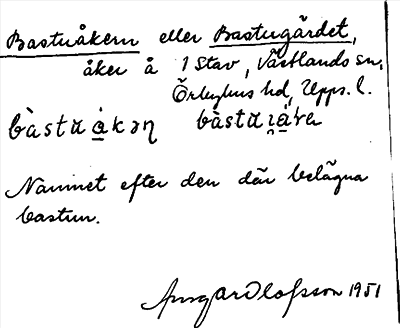 Bastuåkern eller Bastugärdet,
åker å 1 Stav, Västlands sn,
Örbyhus hd, Upps. l.
bàstʉ å̀kəɳ bàstʉ
Namnet efter den där belägna
bastun.
Ingvar Olofsson 1951